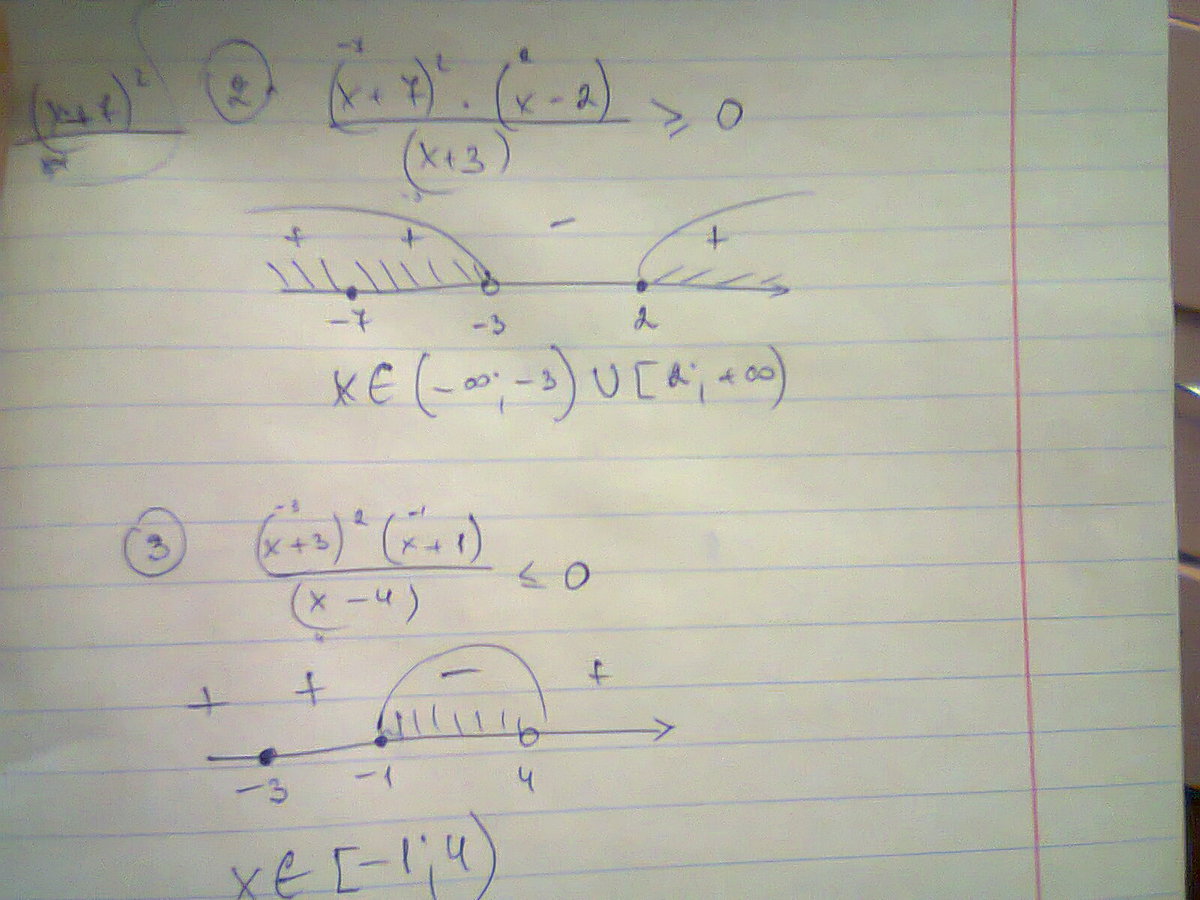 (x+7)²
② (x+7)² · (x-2) ≥ 0
(x+3)
+ + - +
-7 -3 2
x ∈ (-∞; -3) ∪ [2; +∞)
③ (x+3)² (x+1) ≤ 0
(x-4)
+ + - +
-3 -1 4
x ∈ [-1; 4)